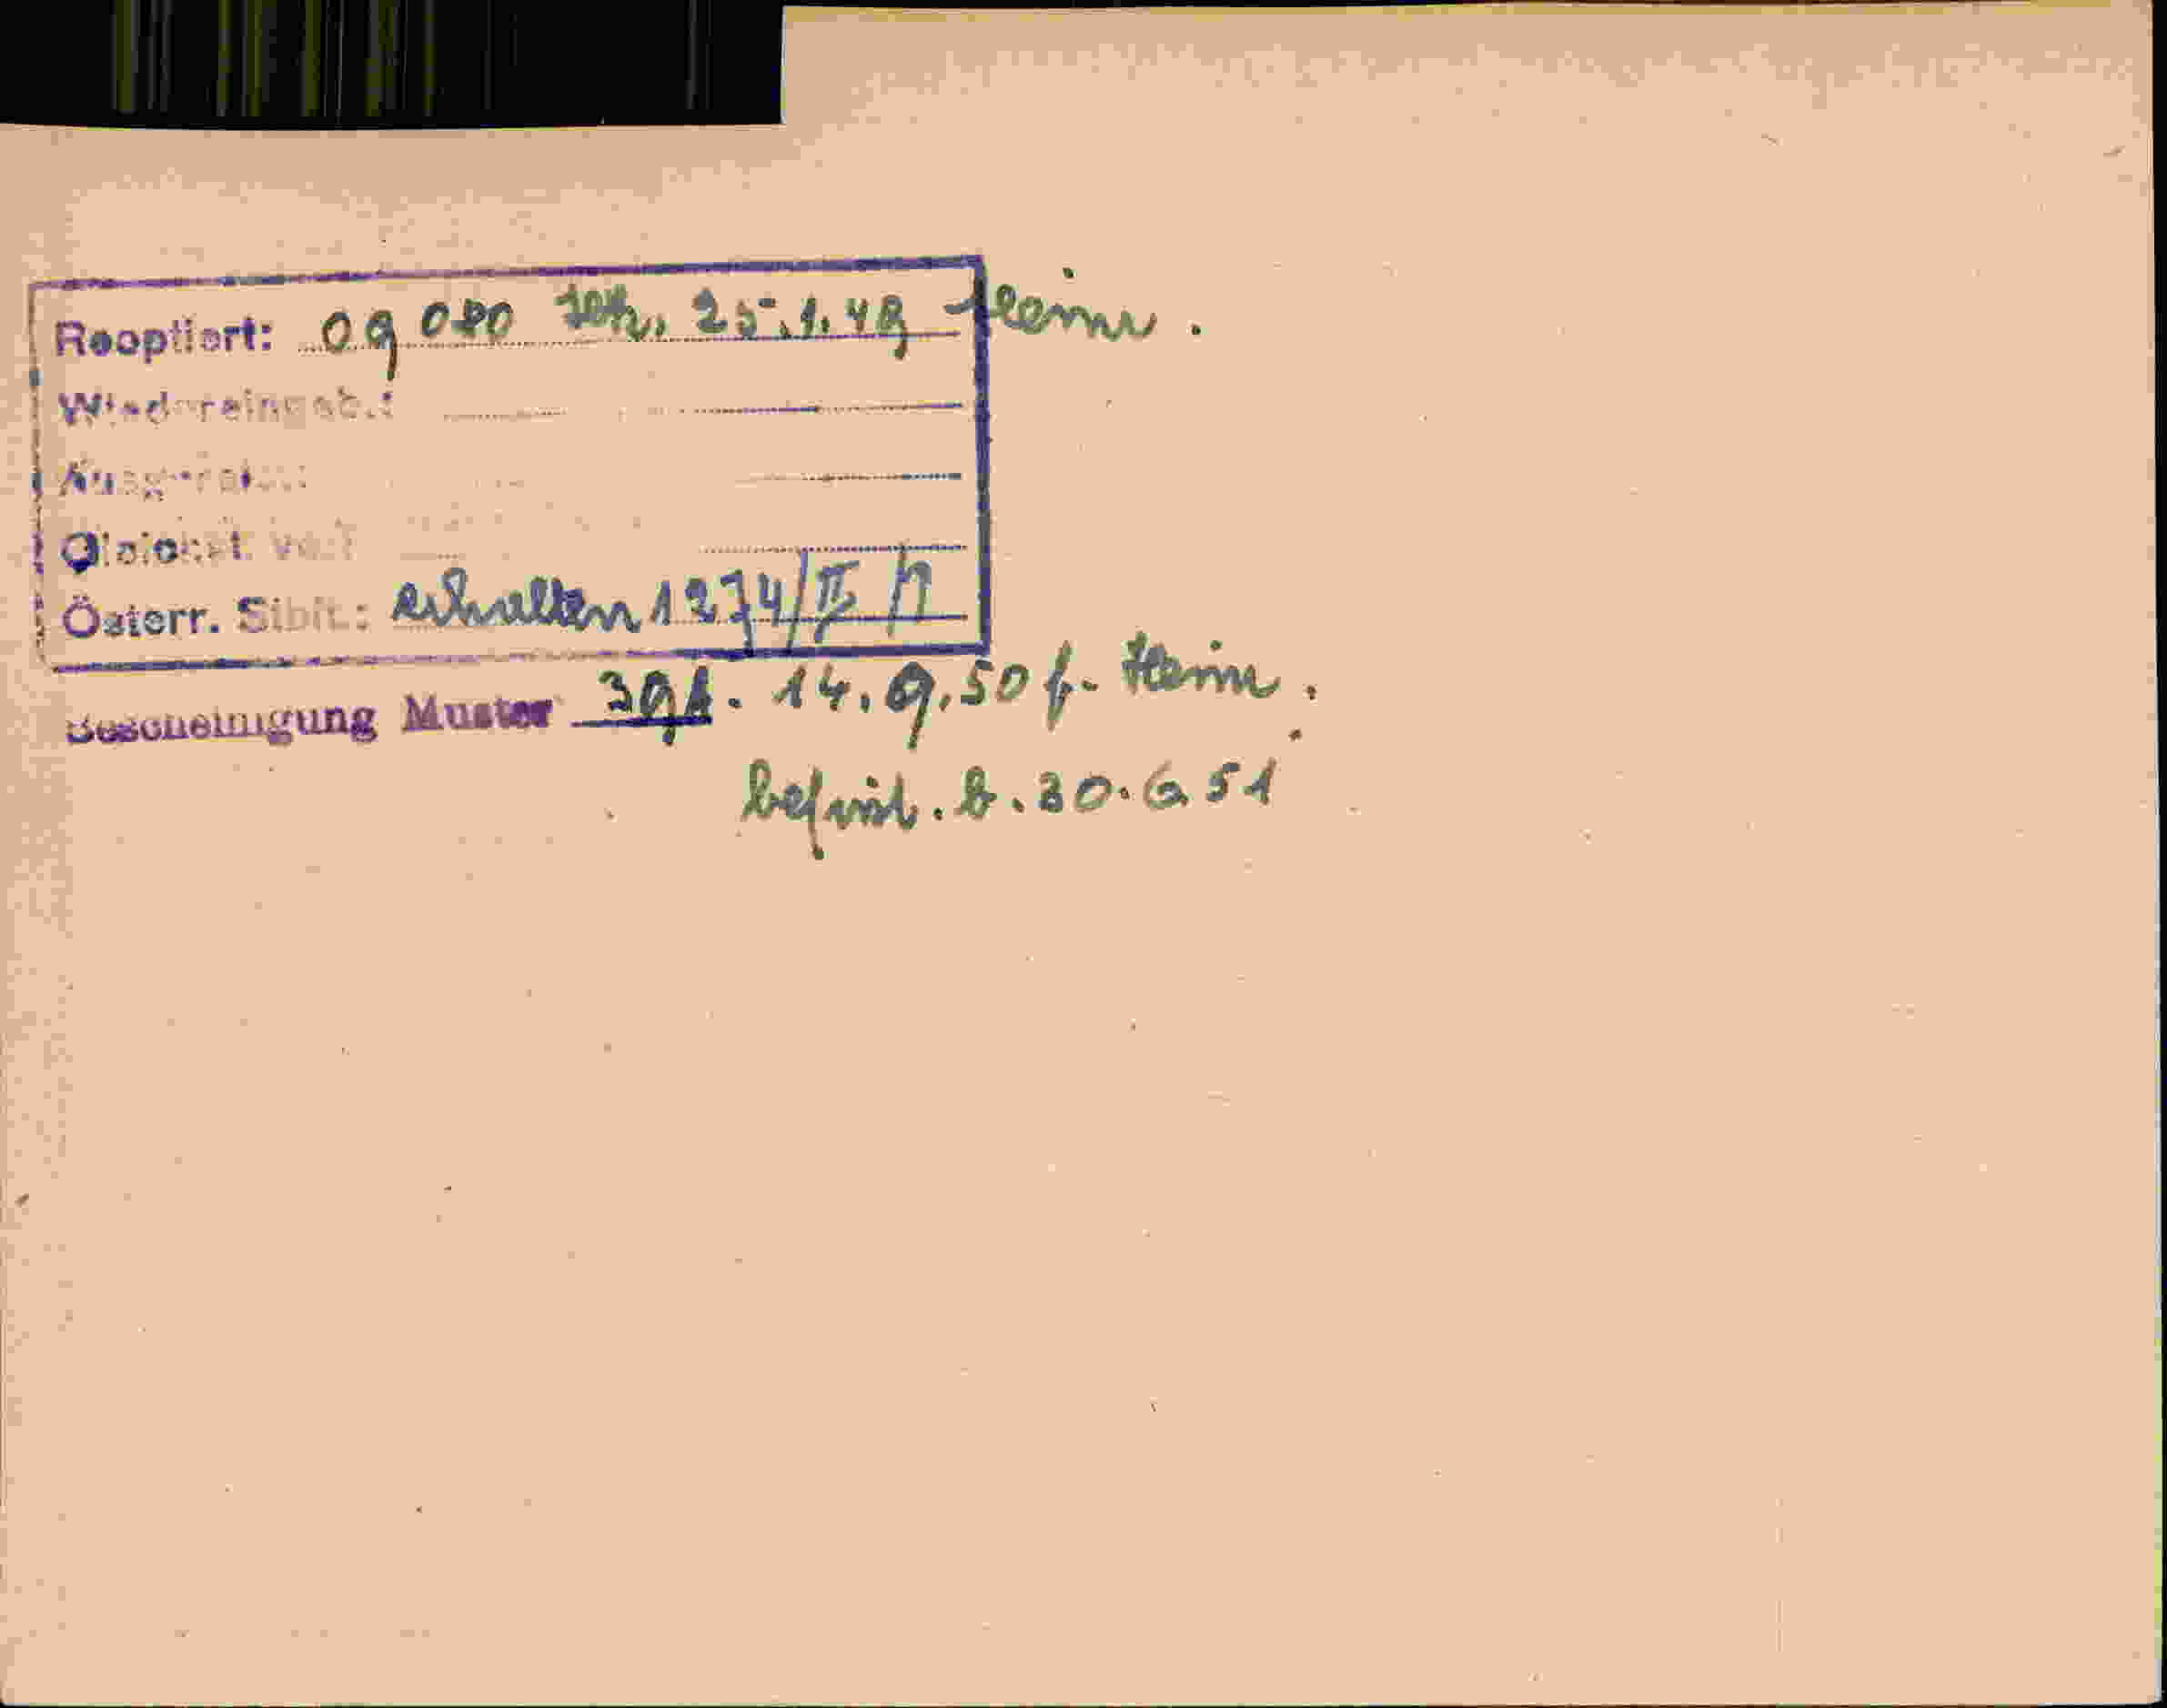 Reoptiert: 09080 25.1.49 Heim.
Wiedereingeb.:
Ausgereist:
Österr. Stbft.: erhalten 1274/II/
Bescheinigung Muster 391. 14.9.50 f. Heim.
befrist. b. 30.6.51